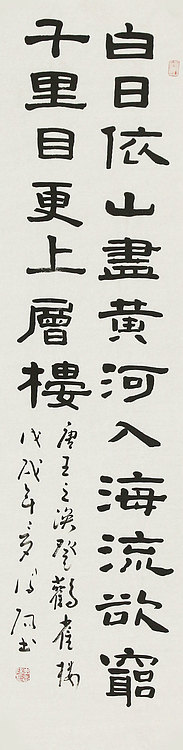 白日依山盡黄河入海流欲窮
千里目更上層樓
唐王之涣登鸛雀楼
戊戌年
书